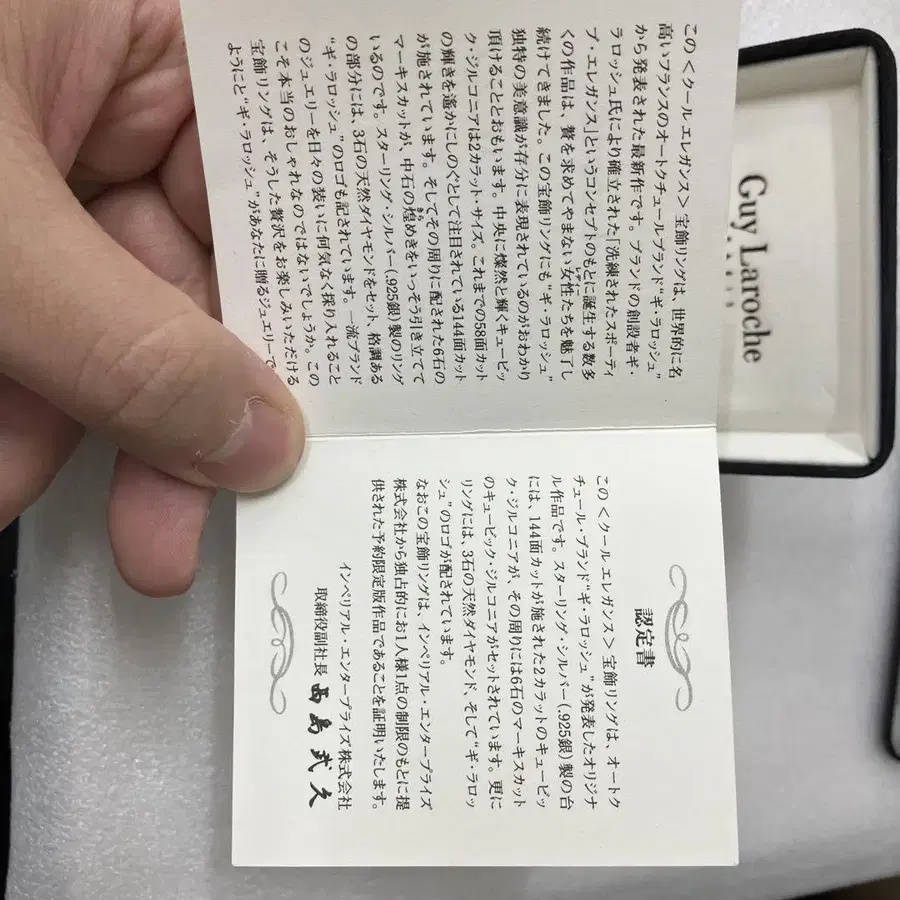 この<クール エレガンス>宝飾リングは、世界的に名
高いフランスのオートクチュールブランド“ギ・ラロッシュ”
から発表された最新作です。ブランドの創設者ギ・
ラロッシュ氏により確立された「洗練されたスポーティ
ブ・エレガンス」というコンセプトのもとに誕生する数多
くの作品は、贅を求めてやまない女性たちを魅了し
続けてきました。この宝飾リングにも“ギ・ラロッシュ”
独特の美意識が存分に表現されているのがおわかり
頂けることとおもいます。中央に燦然と輝くキュービッ
ク・ジルコニアは2カラット・サイズ。これまでの58面カット
の輝きを遥かにしのぐとして注目されている144面カット
が施されています。そしてその周りに配された6石の
マーキスカットが、中石の煌めきをいっそう引き立てて
いるのです。スターリング・シルバー(.925銀)製のリング
の部分には、3石の天然ダイヤモンドをセット、格調ある
“ギ・ラロッシュ”のロゴも記されています。一流ブランド
のジュエリーを日々の装いに何気なく採り入れること
こそ本当のおしゃれなのではないでしょうか。この
宝飾リングは、そうした贅沢をお楽しみいただける
ようにと“ギ・ラロッシュ”があなたに贈るジュエリーで
認定書
この<クール エレガンス>宝飾リングは、オートク
チュール・ブランド“ギ・ラロッシュ”が発表したオリジナ
ル作品です。スターリング・シルバー(.925銀)製の台
には、144面カットが施された2カラットのキュービッ
ク・ジルコニアが、その周りには6石のマーキスカット
のキュービック・ジルコニアがセットされています。更に
リングには、3石の天然ダイヤモンド、そして“ギ・ラロッ
シュ”のロゴが配されています。
なおこの宝飾リングは、インペリアル・エンタープライズ
株式会社から独占的にお1人様1点の制限のもとに提
供された予約限定版作品であることを証明いたします。
インペリアル・エンタープライズ株式会社
取締役副社長 西島武久
Guy Laroche
PARIS